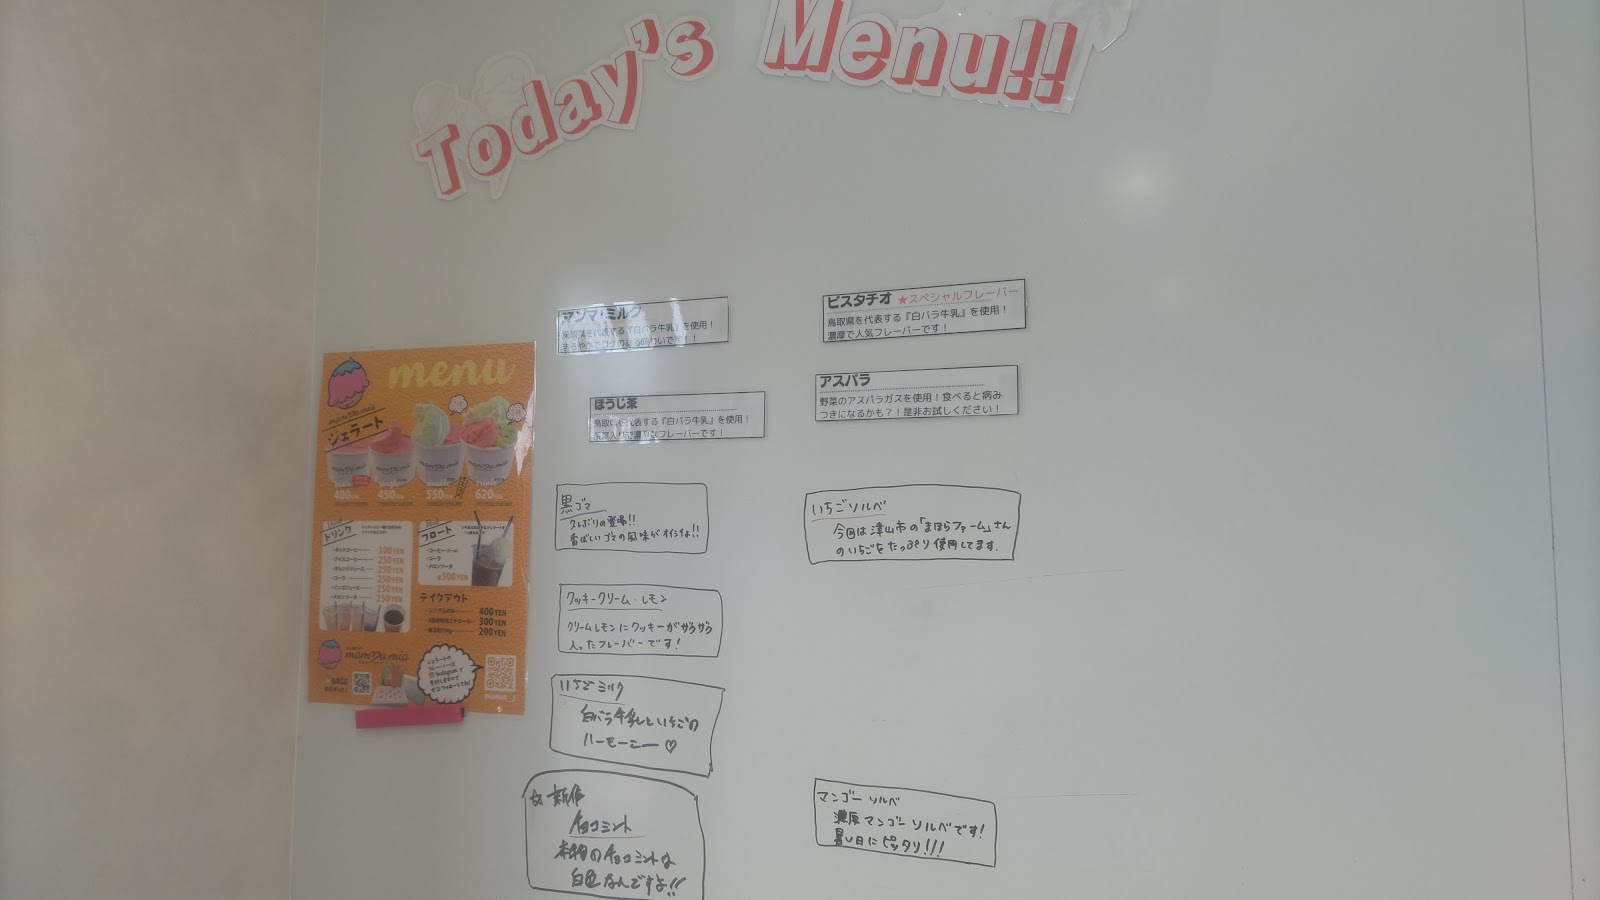 Today's Menu!!
マンマ・ミルク
鳥取県を代表する『白バラ牛乳』を使用！
まろやかでコクのある味わいです！！
ほうじ茶
鳥取県を代表する『白バラ牛乳』を使用！
茶葉入りで濃厚なフレーバーです！
黒ゴマ
久しぶりの登場!!
香ばしいゴマの風味がオイシイよ!!
クッキークリーム・レモン
クリームレモンにクッキーがザクザク
入ったフレーバーです！
いちごミルク
白バラ牛乳といちごの
ハーモニー♡
新作
チョコミント
本物のチョコミントは
白色なんですよ!!
ピスタチオ ★スペシャルフレーバー
鳥取県を代表する『白バラ牛乳』を使用！
濃厚で人気フレーバーです！
アスパラ
野菜のアスパラガスを使用！食べると病み
つきになるかも？！是非お試しください！
いちごソルベ
今回は津山市の「まほらファーム」さん
のいちごをたっぷり使用してます.
マンゴーソルベ
濃厚マンゴーソルベです!
暑い日にピッタリ!!!
menu
mamma mia
ジェラート
400YEN
450YEN
550YEN
620YEN
ドリンク
・ホットコーヒー 300YEN
・アイスコーヒー 250YEN
・オレンジジュース 250YEN
・コーラ 250YEN
・マンゴジュース 250YEN
・メロンソーダ 250YEN
フロート
・コーラ
・メロンソーダ
各500YEN
テイクアウト
400YEN
300YEN
200YEN
mamma mia
ジェラートの
フレーバーは
Instagramで